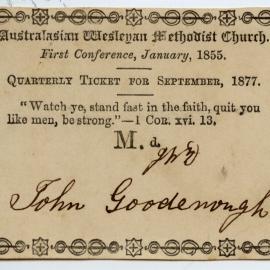 Australasian Wesleyan Methodist Church.
First Conference, January, 1855.
QUARTERLY TICKET FOR SEPTEMBER, 1877.
"Watch ye, stand fast in the faith, quit you
like men, be strong."—1 COR. xvi. 13.
M. d.
John Goodenough